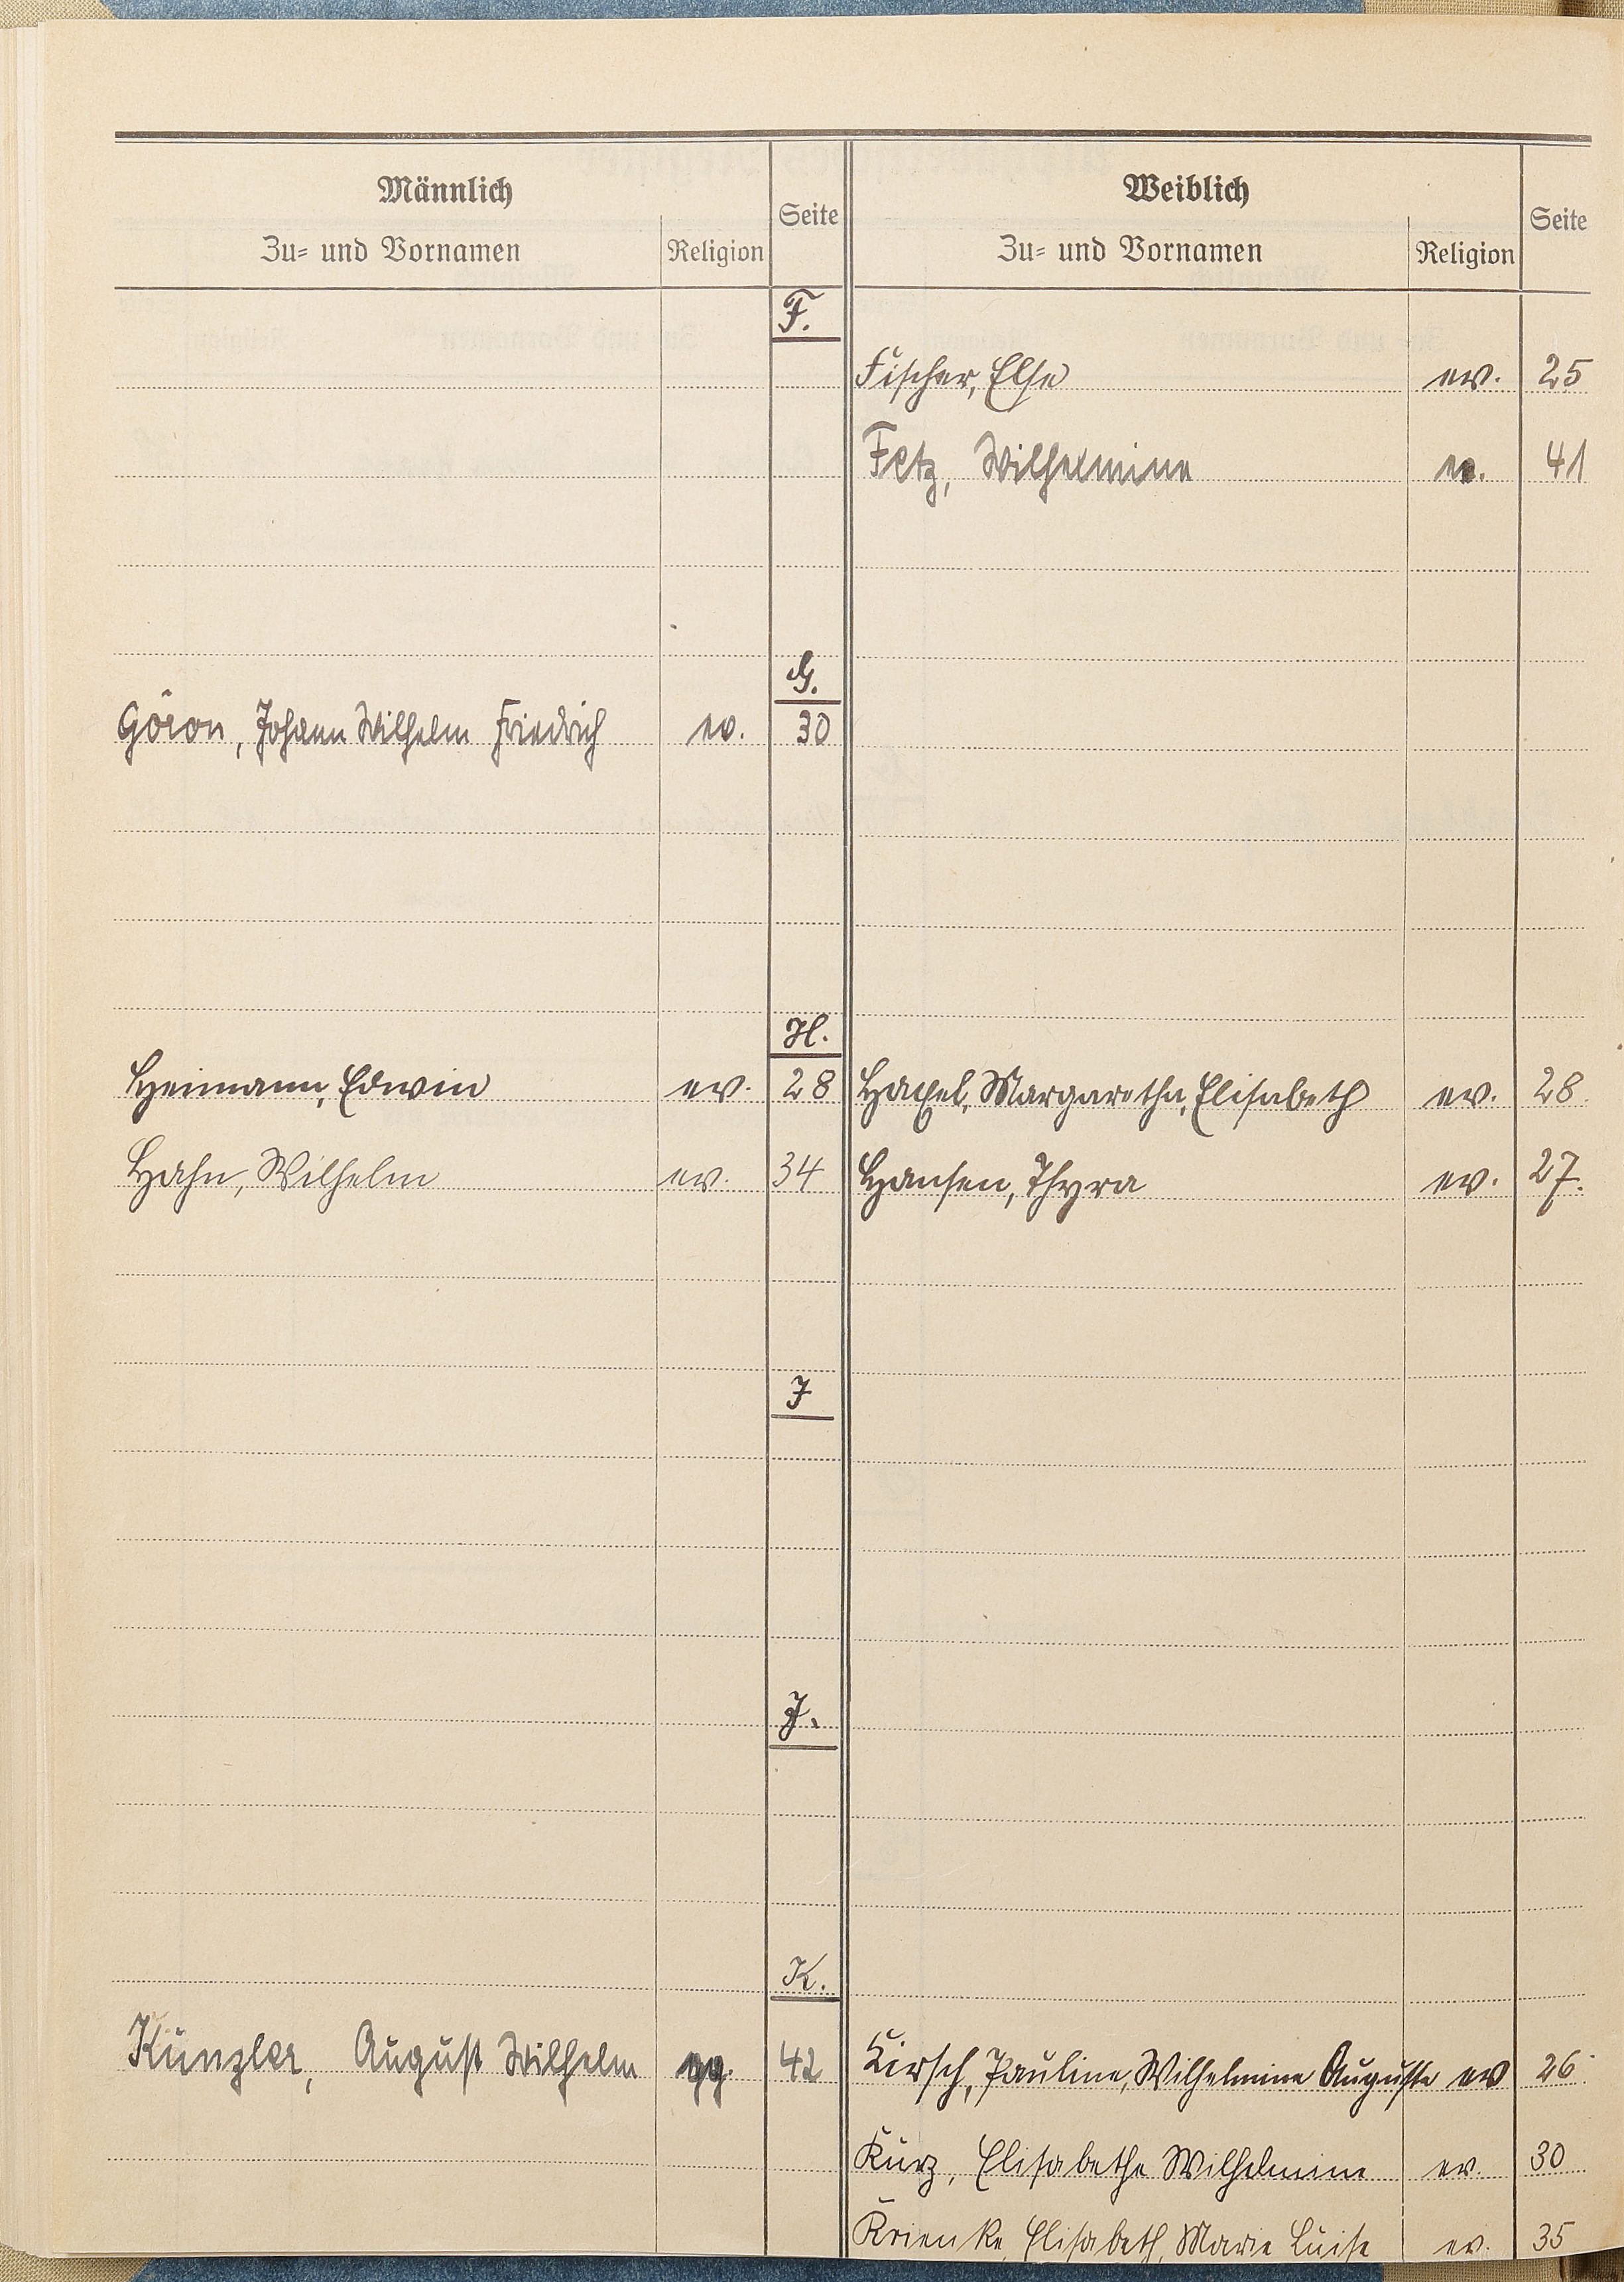 Männlich Seite Weiblich Seite
Zu- und Vornamen Religion Zu- und Vornamen Religion
F.
Fischer, Else ev. 25
Fetz, Wilhelmine ev. 41
G.
Göron, Johann Wilhelm Friedrich ev. 30
H.
Heimann, Edwin ev. 28 Haxel, Margaretha, Elisabeth ev. 28.
Hahn, Wilhelm ev. 34 Hansen, Thyra ev. 27.
I
J.
K.
Künzler, August Wilhelm 42 Kirsch, Pauline, Wilhelmine Auguste ev 26.
Kurz, Elisabethe Wilhelmine ev. 30
Krienke, Elisabeth, Marie Luise ev. 35